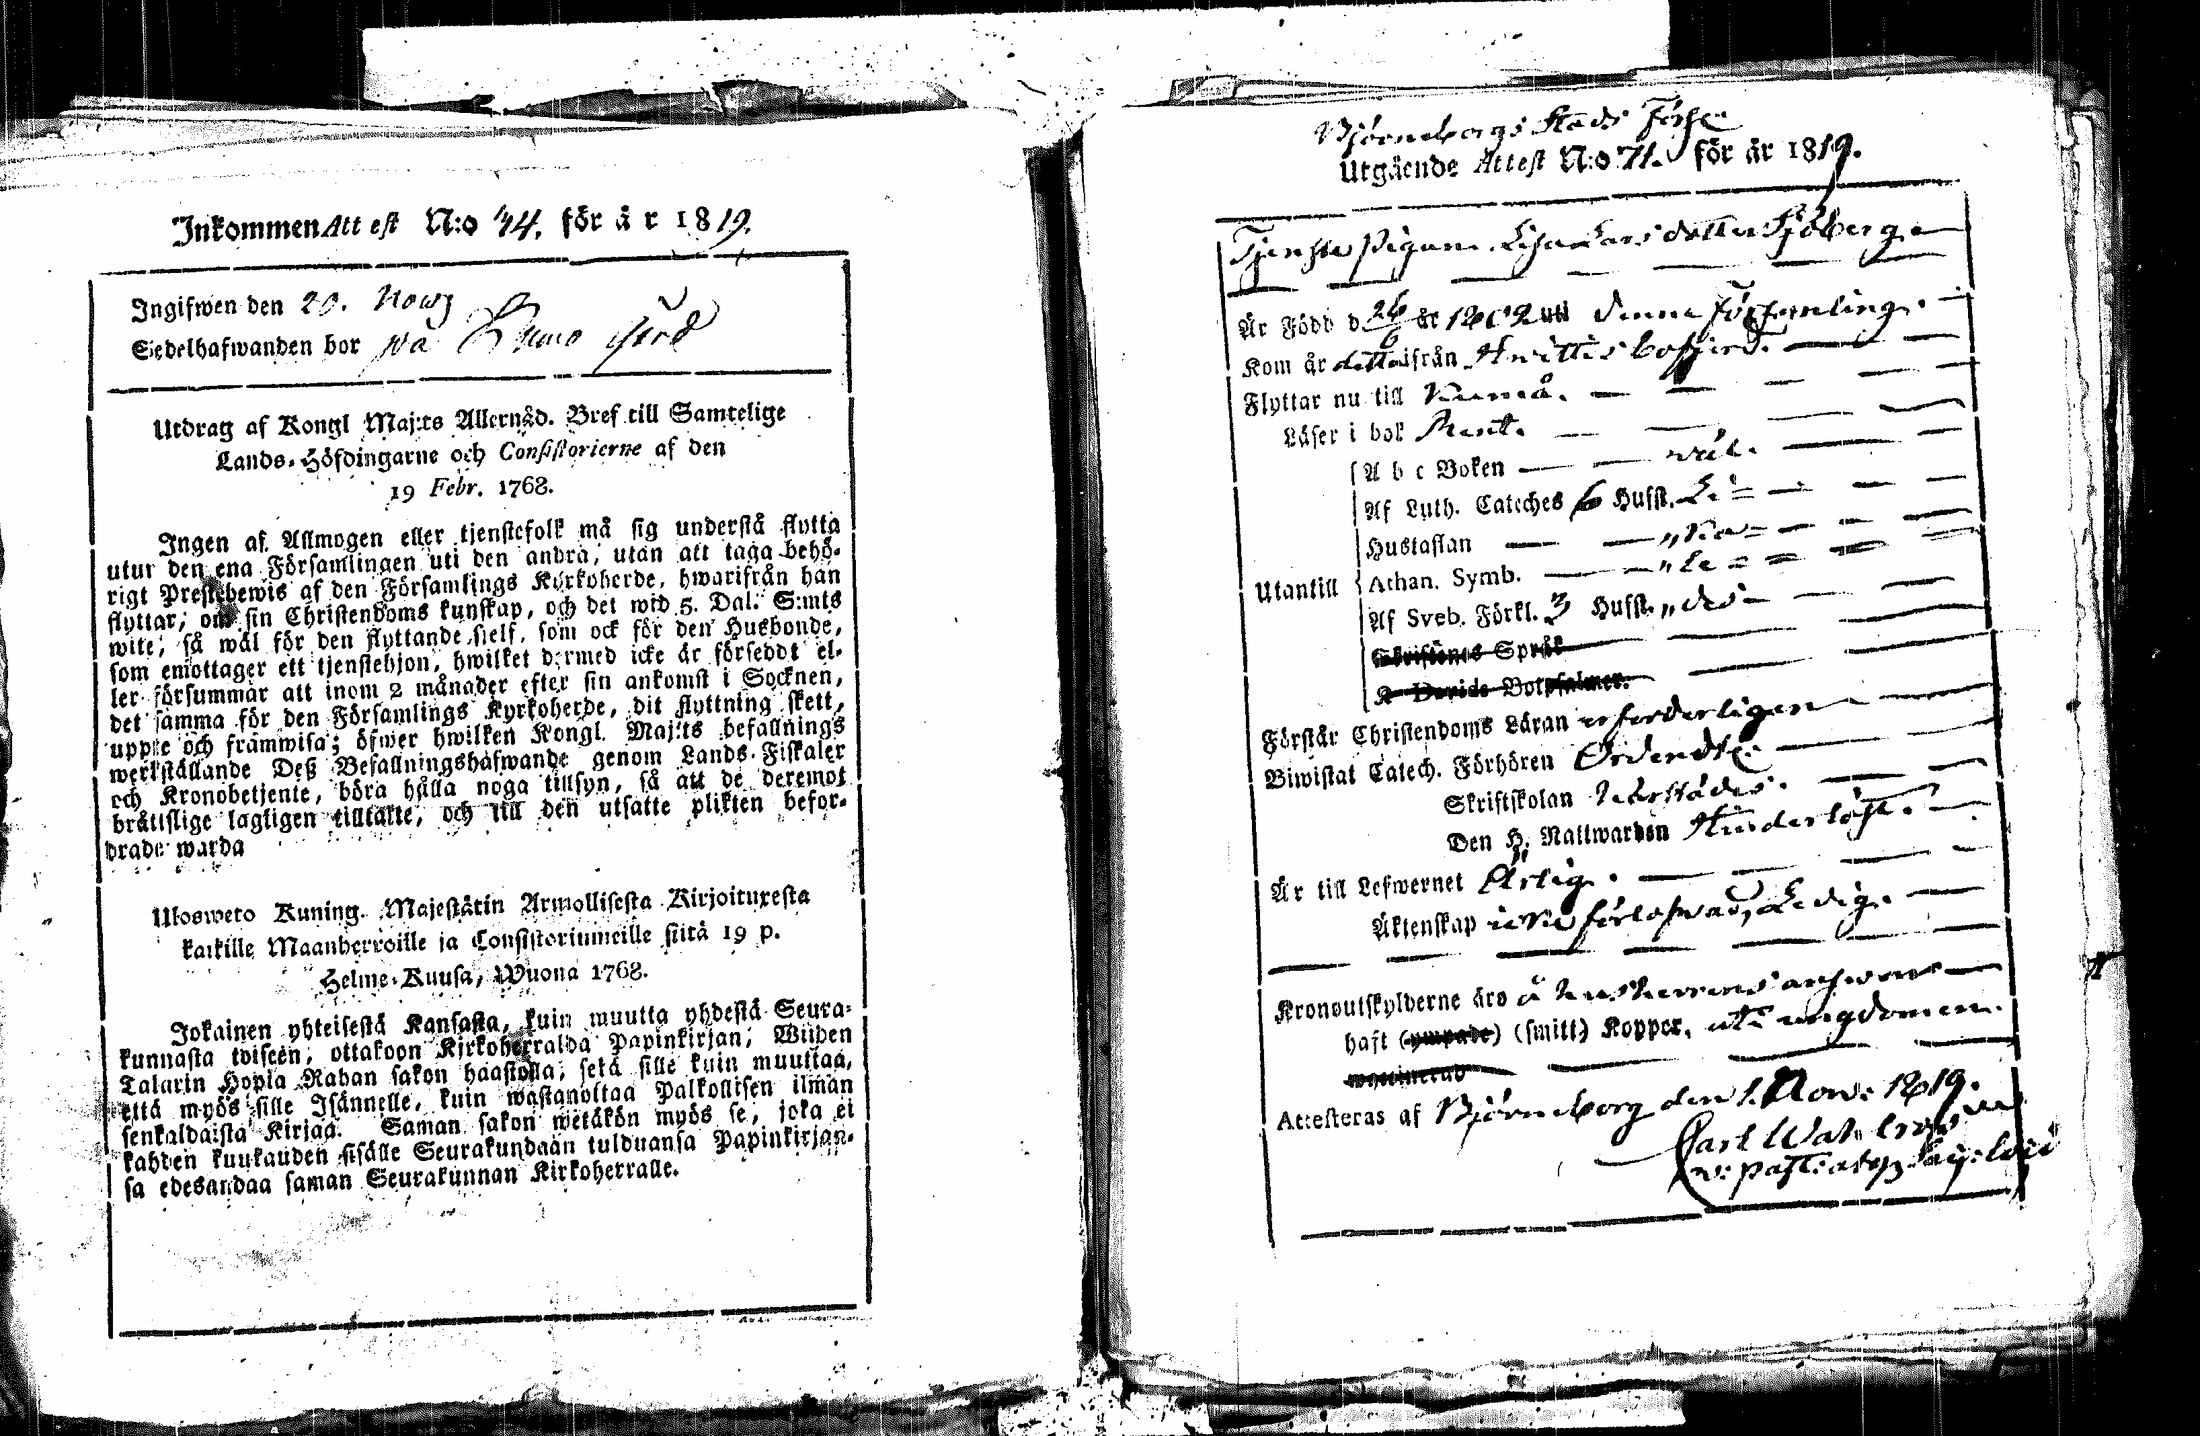 Inkommen Attest N:o 44. för år 1819.
Ingifwen den 20. Nov
Sedelhafwanden bor på
Utdrag af Kongl Maj:ts Allernåd. Bref till Samtelige
Lands-Höfdingarne och Consistorierne af den
19 Febr. 1768.
Ingen af Allmogen eller tjenstefolk må sig understå flytta
utur den ena Församlingen uti den andra, utan att taga behö-
rigt Prestebewis af den Församlings Kyrkoherde, hwarifrån han
flyttar, om sin Christendoms kunskap, och det wid 5. Dal. S:mts
wite, så wäl för den flyttande sielf, som ock för den Husbonde,
som emottager ett tjenstehjon, hwilket dermed icke är försedt el-
ler försummar att inom 2 månader efter sin ankomst i Socknen,
det samma för den Församlings Kyrkoherde, dit flyttning skett,
uppte och främwisa; öfwer hwilken Kongl. Maj:ts befallnings
werkställande Deß Befallningshafwande genom Lands-Fiskaler
och Kronobetjente, böra hålla noga tillsyn, så att de deremot
bråttslige lagligen tilltalte, och till den utsatte plikten befor-
drade warda
Ulosweto Kuning. Majestätin Armollisesta Kirjoituxesta
kaikille Maanherroille ja Consistoriumeille siitä 19 p.
Helme-Kuusa, Wuona 1768.
Jokainen yhteisestä Kansasta, kuin muutta yhdestä Seura-
kunnasta toiseen, ottakoon Kirkoherralda Papinkirjan; Wiiden
Talarin Hopia Rahan sakon haastolla; sekä sille kuin muuttaa,
että myös sille Isännelle, kuin wastanottaa Palkollisen ilman
senkaldaista Kirjaa. Saman sakon wetäkön myös se, joka ei
kahden kuukauden sisälle Seurakundaan tulduansa Papinkirjan-
sa edesandaa saman Seurakunnan Kirkoherralle.
Björneborgs Stads Förs
Utgående Attest N:o 71. för år 1819.
Tjenste Pigan Lisa Larsdotter Sjöberg
Är Född d 26/6 år 1802 uti denne Församling.
Kom år detta ifrån Hvittisbofjerd.
Flyttar nu till Kumå.
Läser i bok Rent.
A b c Boken väl.
Af Luth. Cateches 6 Husst.
Hustaflan
Utantill Athan. Symb.
Af Sveb. Förkl. 3 Husst.
Skriftenes Språk
K Davids Botpsalmer.
Förstår Christendoms Läran erforderligen
Biwistat Catech. Förhören Ordentl:
Skriftskolan härstädes.
Den H. Nattwarden Hinderlöst.
Är till Lefwernet Ärlig.
Äktenskap icke förlofwad, Ledig.
Kronoutskylderne äro å husherrens answar
haft (ympade) (smitt) Kopper, uti ungdomen.
waccinerad
Attesteras af Björneborg den 1. Nov: 1819.
Carl
v: Past: